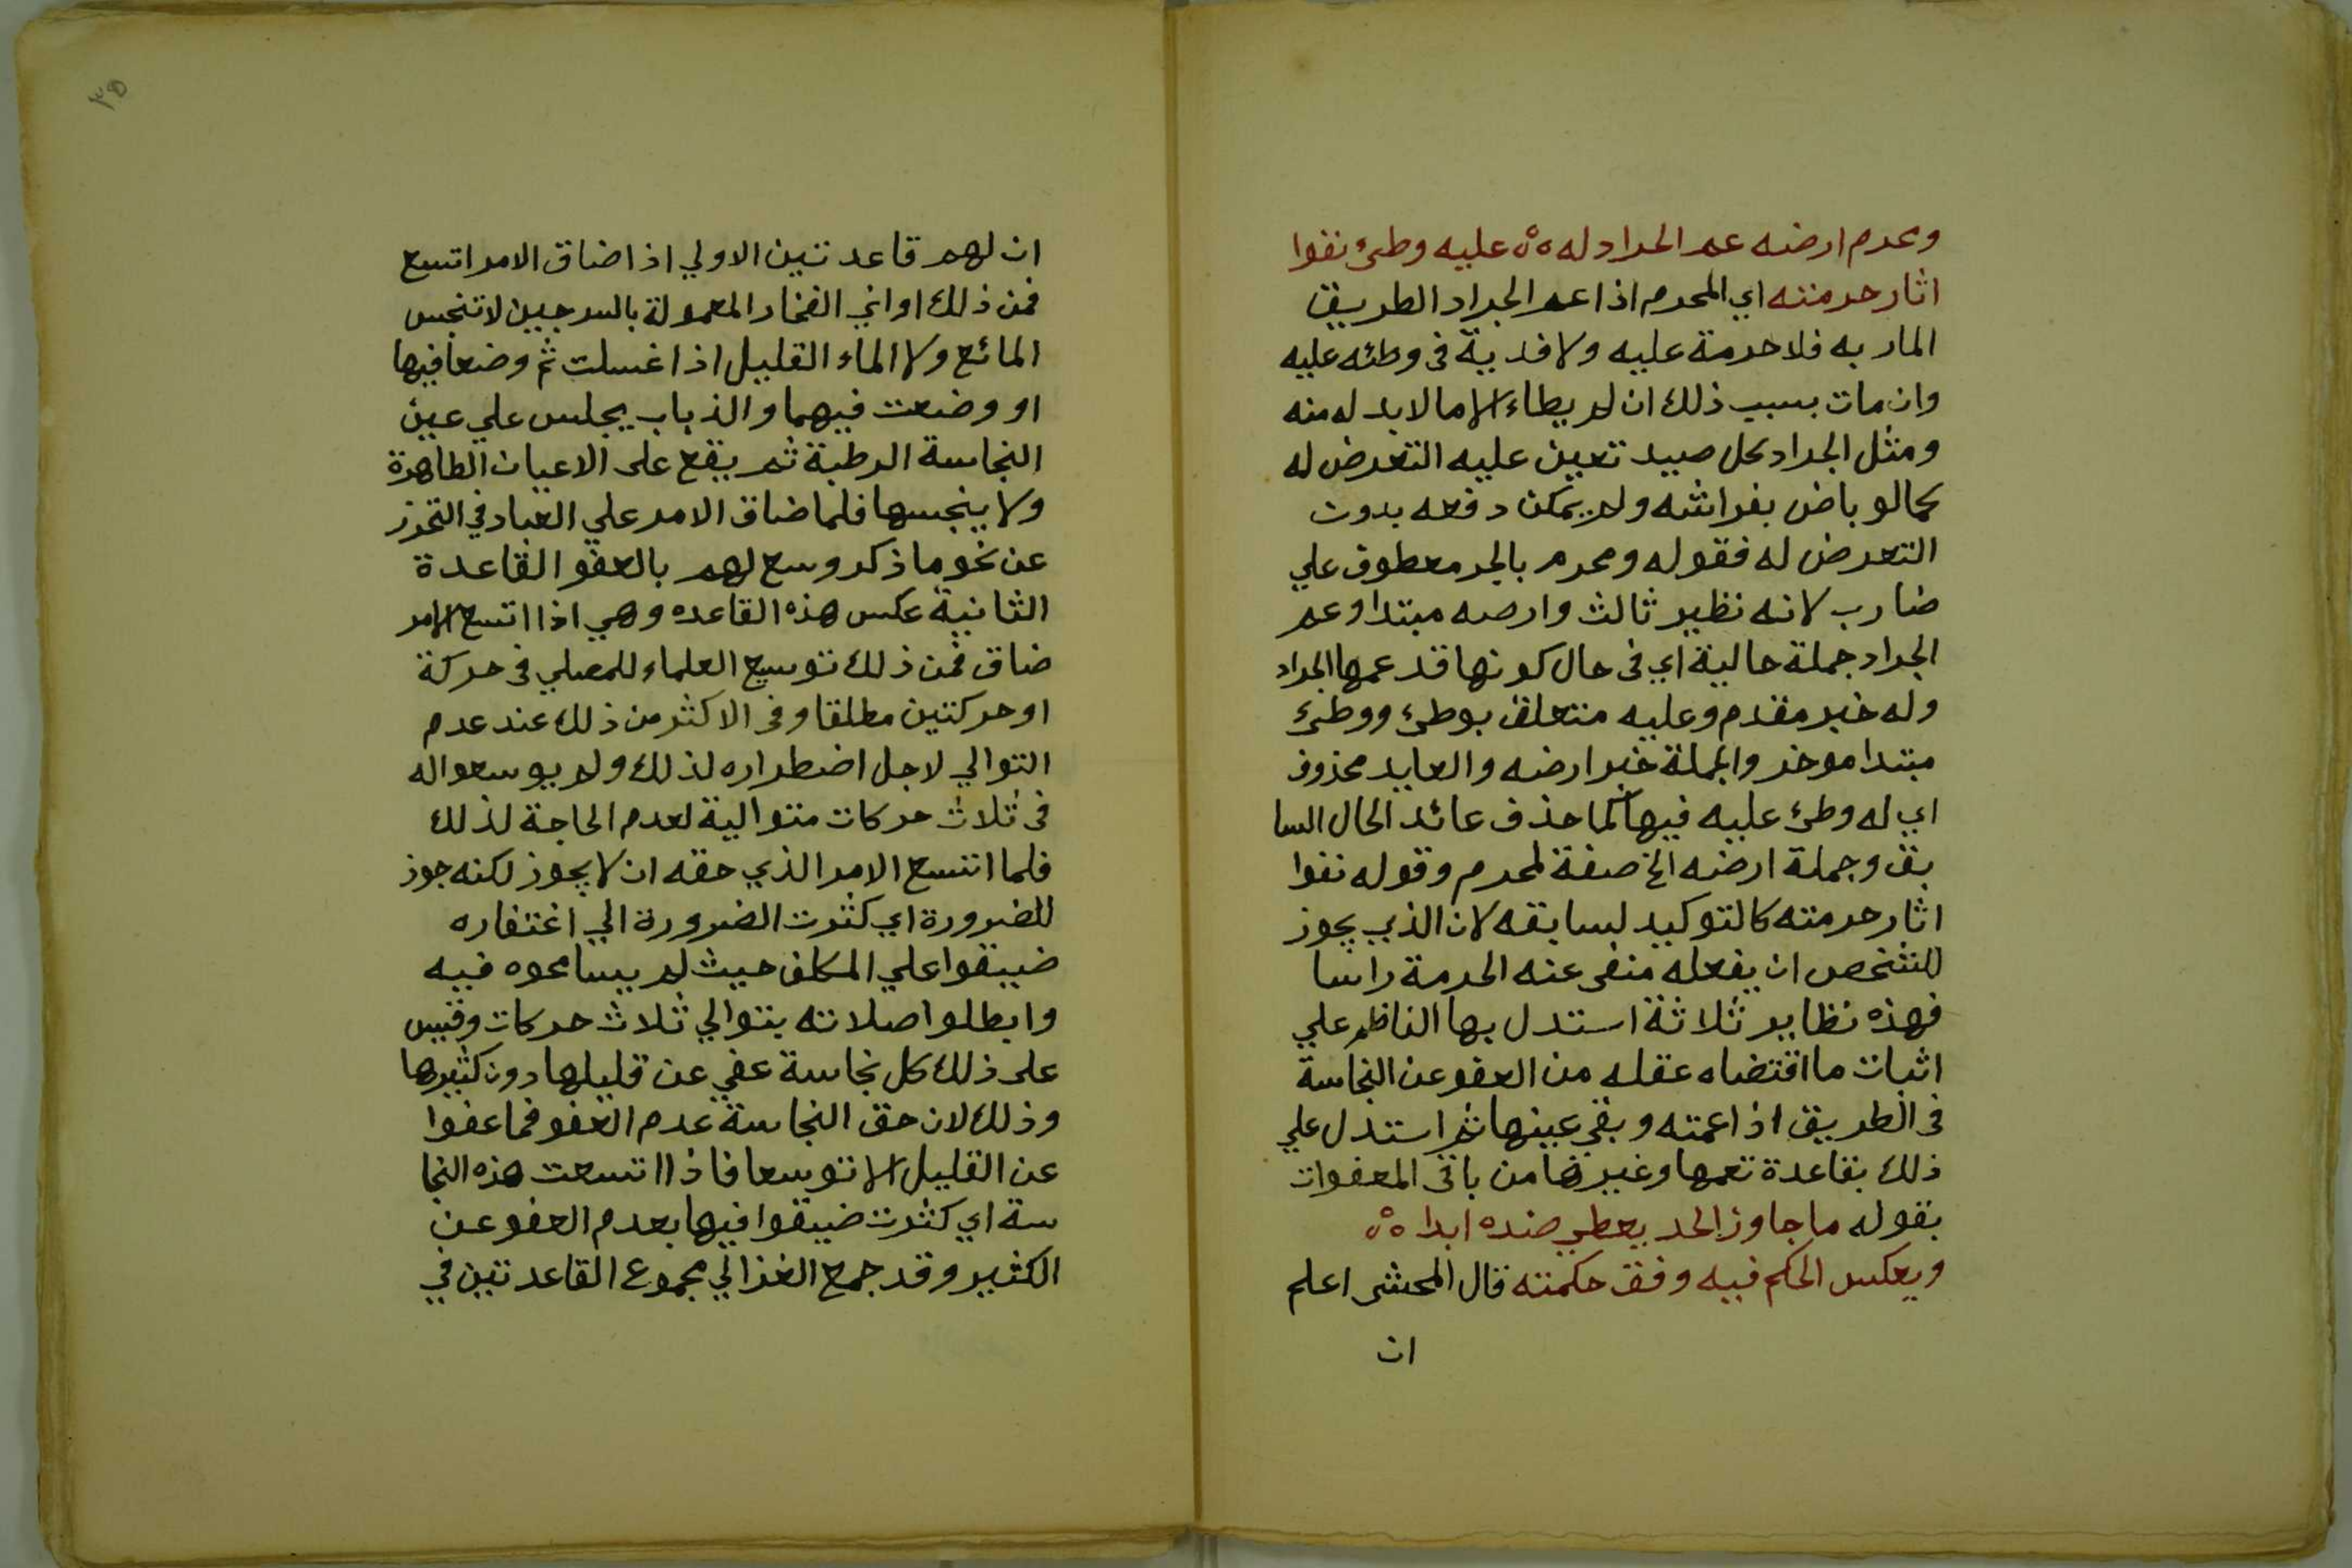 ومحرم ارضه عم الجراد له ٥٥ عليه وطئ نفوا
اثار حرمته اي المحرم اذا عم الجراد الطريق
المار به فلا حرمة عليه ولا فدية فى وطئه عليه
وان مات بسبب ذلك ان لم يطاء الا ما لا بد له منه
ومثل الجراد كل صيد تعين عليه التعرض له
كما لو باض بفراشه ولم يمكن دفعه بدون
التعرض له فقوله ومحرم بالجر معطوف علي
ضارب لانه نظير ثالث وارضه مبتدا وعم
الجراد جملة حالية اي فى حال كونها قد عمها الجراد
وله خبر مقدم وعليه متعلق بوطئ ووطئ
مبتدا موخر والجملة خبر ارضه والعايد محذوف
اي له وطئ عليه فيها كما حذف عائد الحال السا
بق وجملة ارضه الخ صفة لمحرم وقوله نفوا
اثار حرمته كالتوكيد لسابقه لان الذي يجوز
للشخص ان يفعله منفى عنه الحرمة راسا
فهذه نظاير ثلاثة استدل بها الناظم علي
اثبات ما اقتضاه عقله من العفو عن النجاسة
فى الطريق اذا عمته وبقي عينها ثم استدل علي
ذلك بقاعدة تعمها وغيرها من باقى المعفوات
بقوله ما جاوز الحد يعطي ضده ابدا ٥٥
ويعكس الحكم فيه وفق حكمته قال المحشى اعلم
ان
٣٥
ان لهم قاعدتين الاولي اذا ضاق الامر اتسع
فمن ذلك اواني الفخار المعمولة بالسرجين لا تنجس
المائع ولا الماء القليل اذا غسلت ثم وضعا فيها
او وضعت فيهما والذباب يجلس علي عين
النجاسة الرطبة ثم يقع على الاعيان الطاهرة
ولا ينجسها فلما ضاق الامر علي العباد في التحرز
عن نحو ما ذكر وسع لهم بالعفو القاعدة
الثانية عكس هذه القاعده وهي اذا اتسع الامر
ضاق فمن ذلك توسيع العلماء للمصلي فى حركة
او حركتين مطلقا وفى الاكثر من ذلك عند عدم
التوالي لاجل اضطراره لذلك ولم يوسعوا له
فى ثلاث حركات متوالية لعدم الحاجة لذلك
فلما اتسع الامر الذي حقه ان لا يجوز لكنه جوز
للضرورة اي كثرت الضرورة الي اغتفاره
ضيقوا علي المكلف حيث لم يسامحوه فيه
وابطلوا صلاته بتوالي ثلاث حركات وقيس
على ذلك كل نجاسة عفي عن قليلها دون كثيرها
وذلك لان حق النجاسة عدم العفو فما عفوا
عن القليل الا توسعا فاذا اتسعت هذه النجا
سة اي كثرت ضيقوا فيها بعدم العفو عن
الكثير وقد جمع الغزالي مجموع القاعدتين في